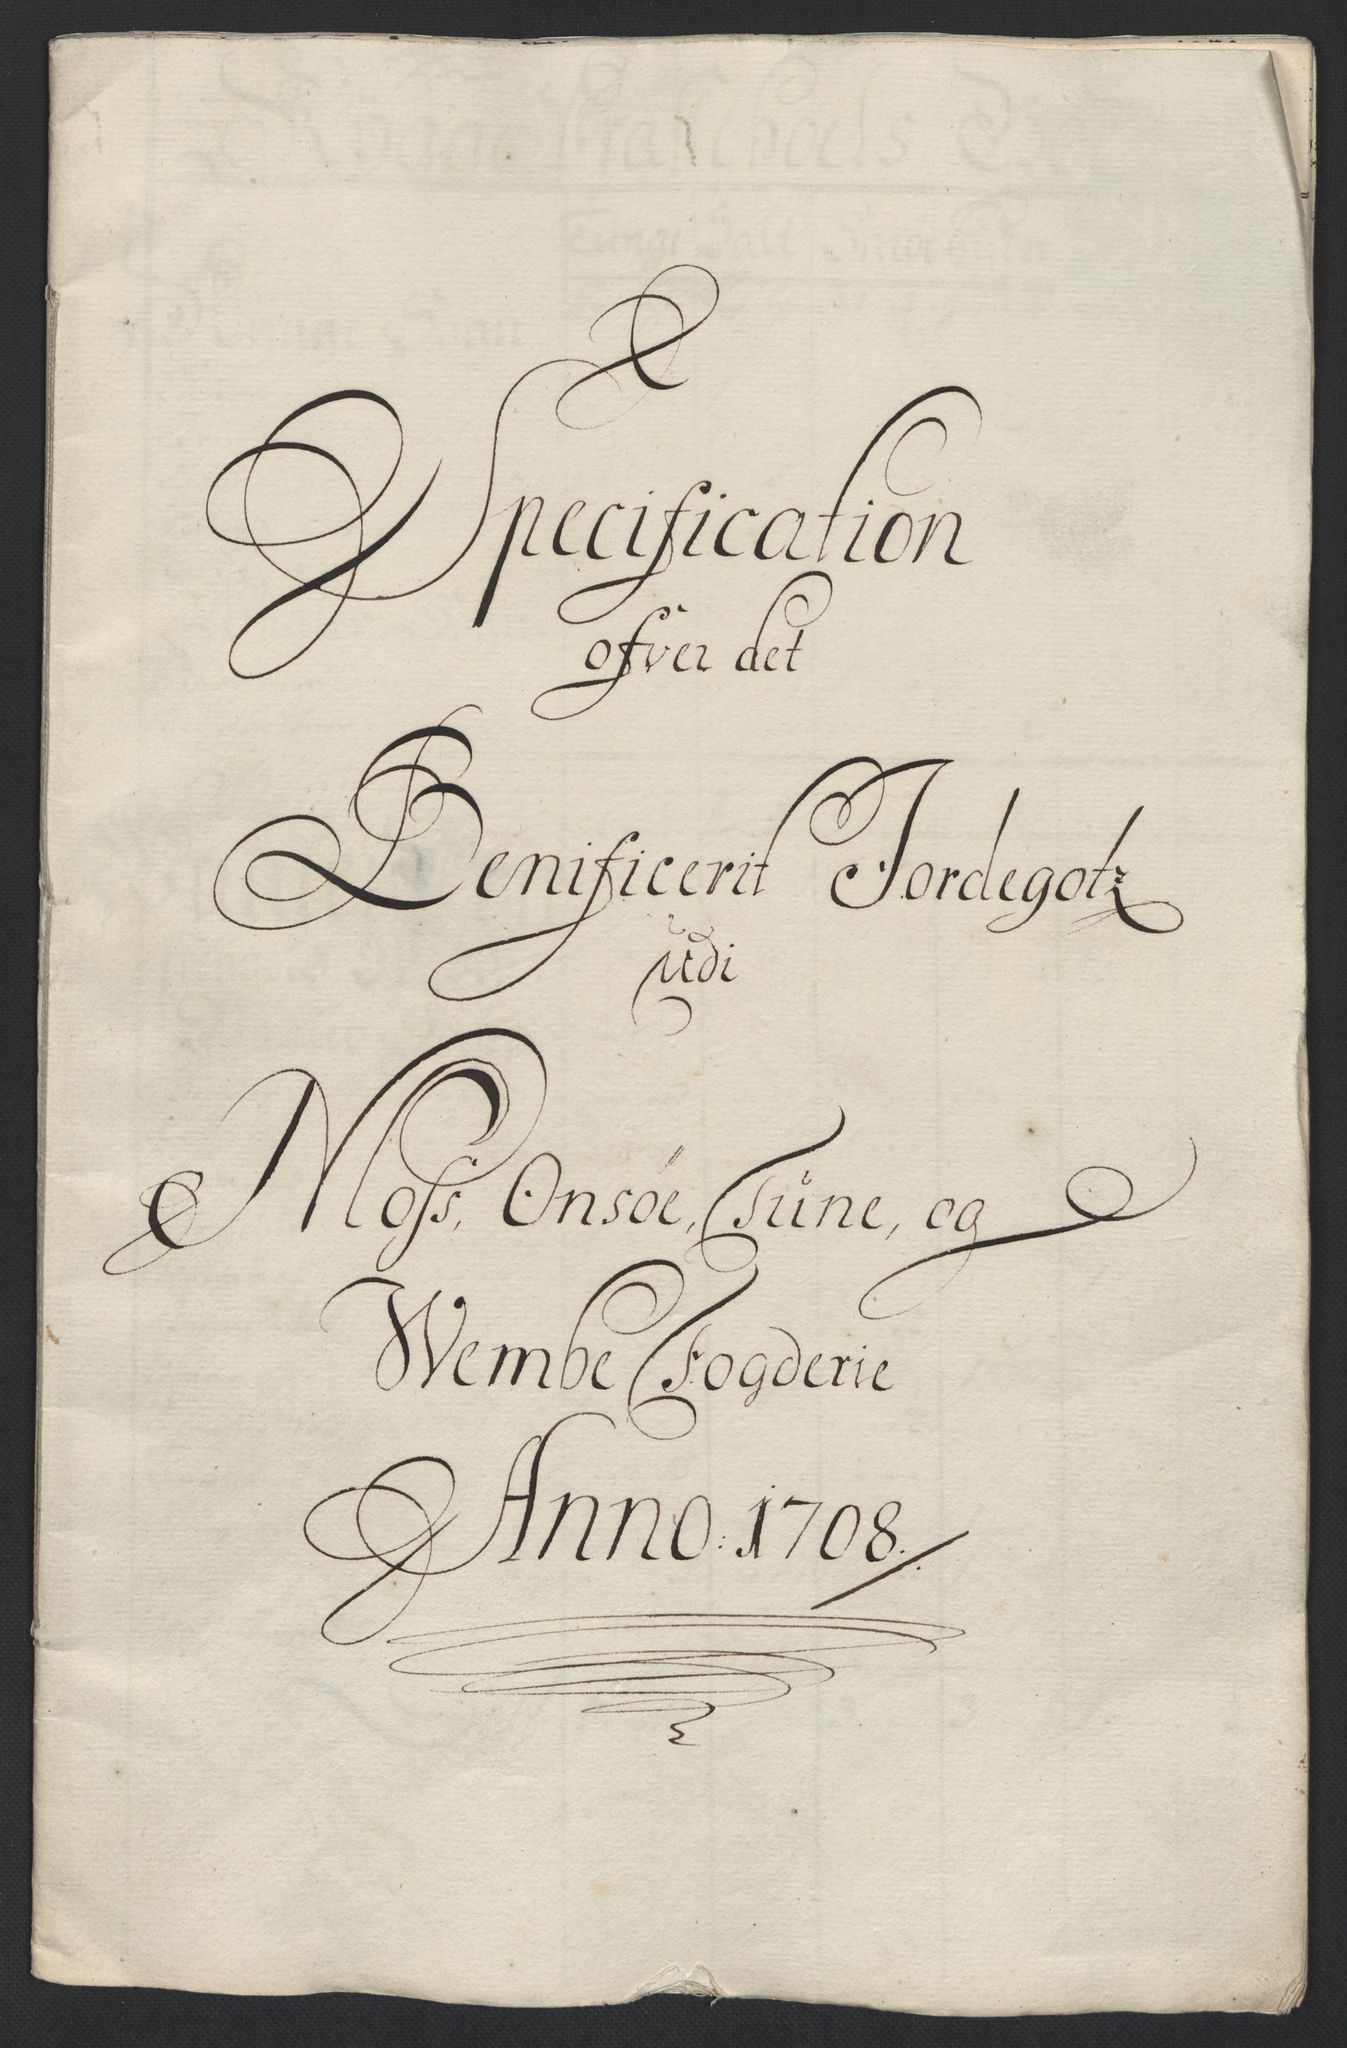 Specification
ofver det
Benificerit Jordegotz
udi
Moss, Onsöe, Tune, og
Wembe Fogderie
Anno: 1708.